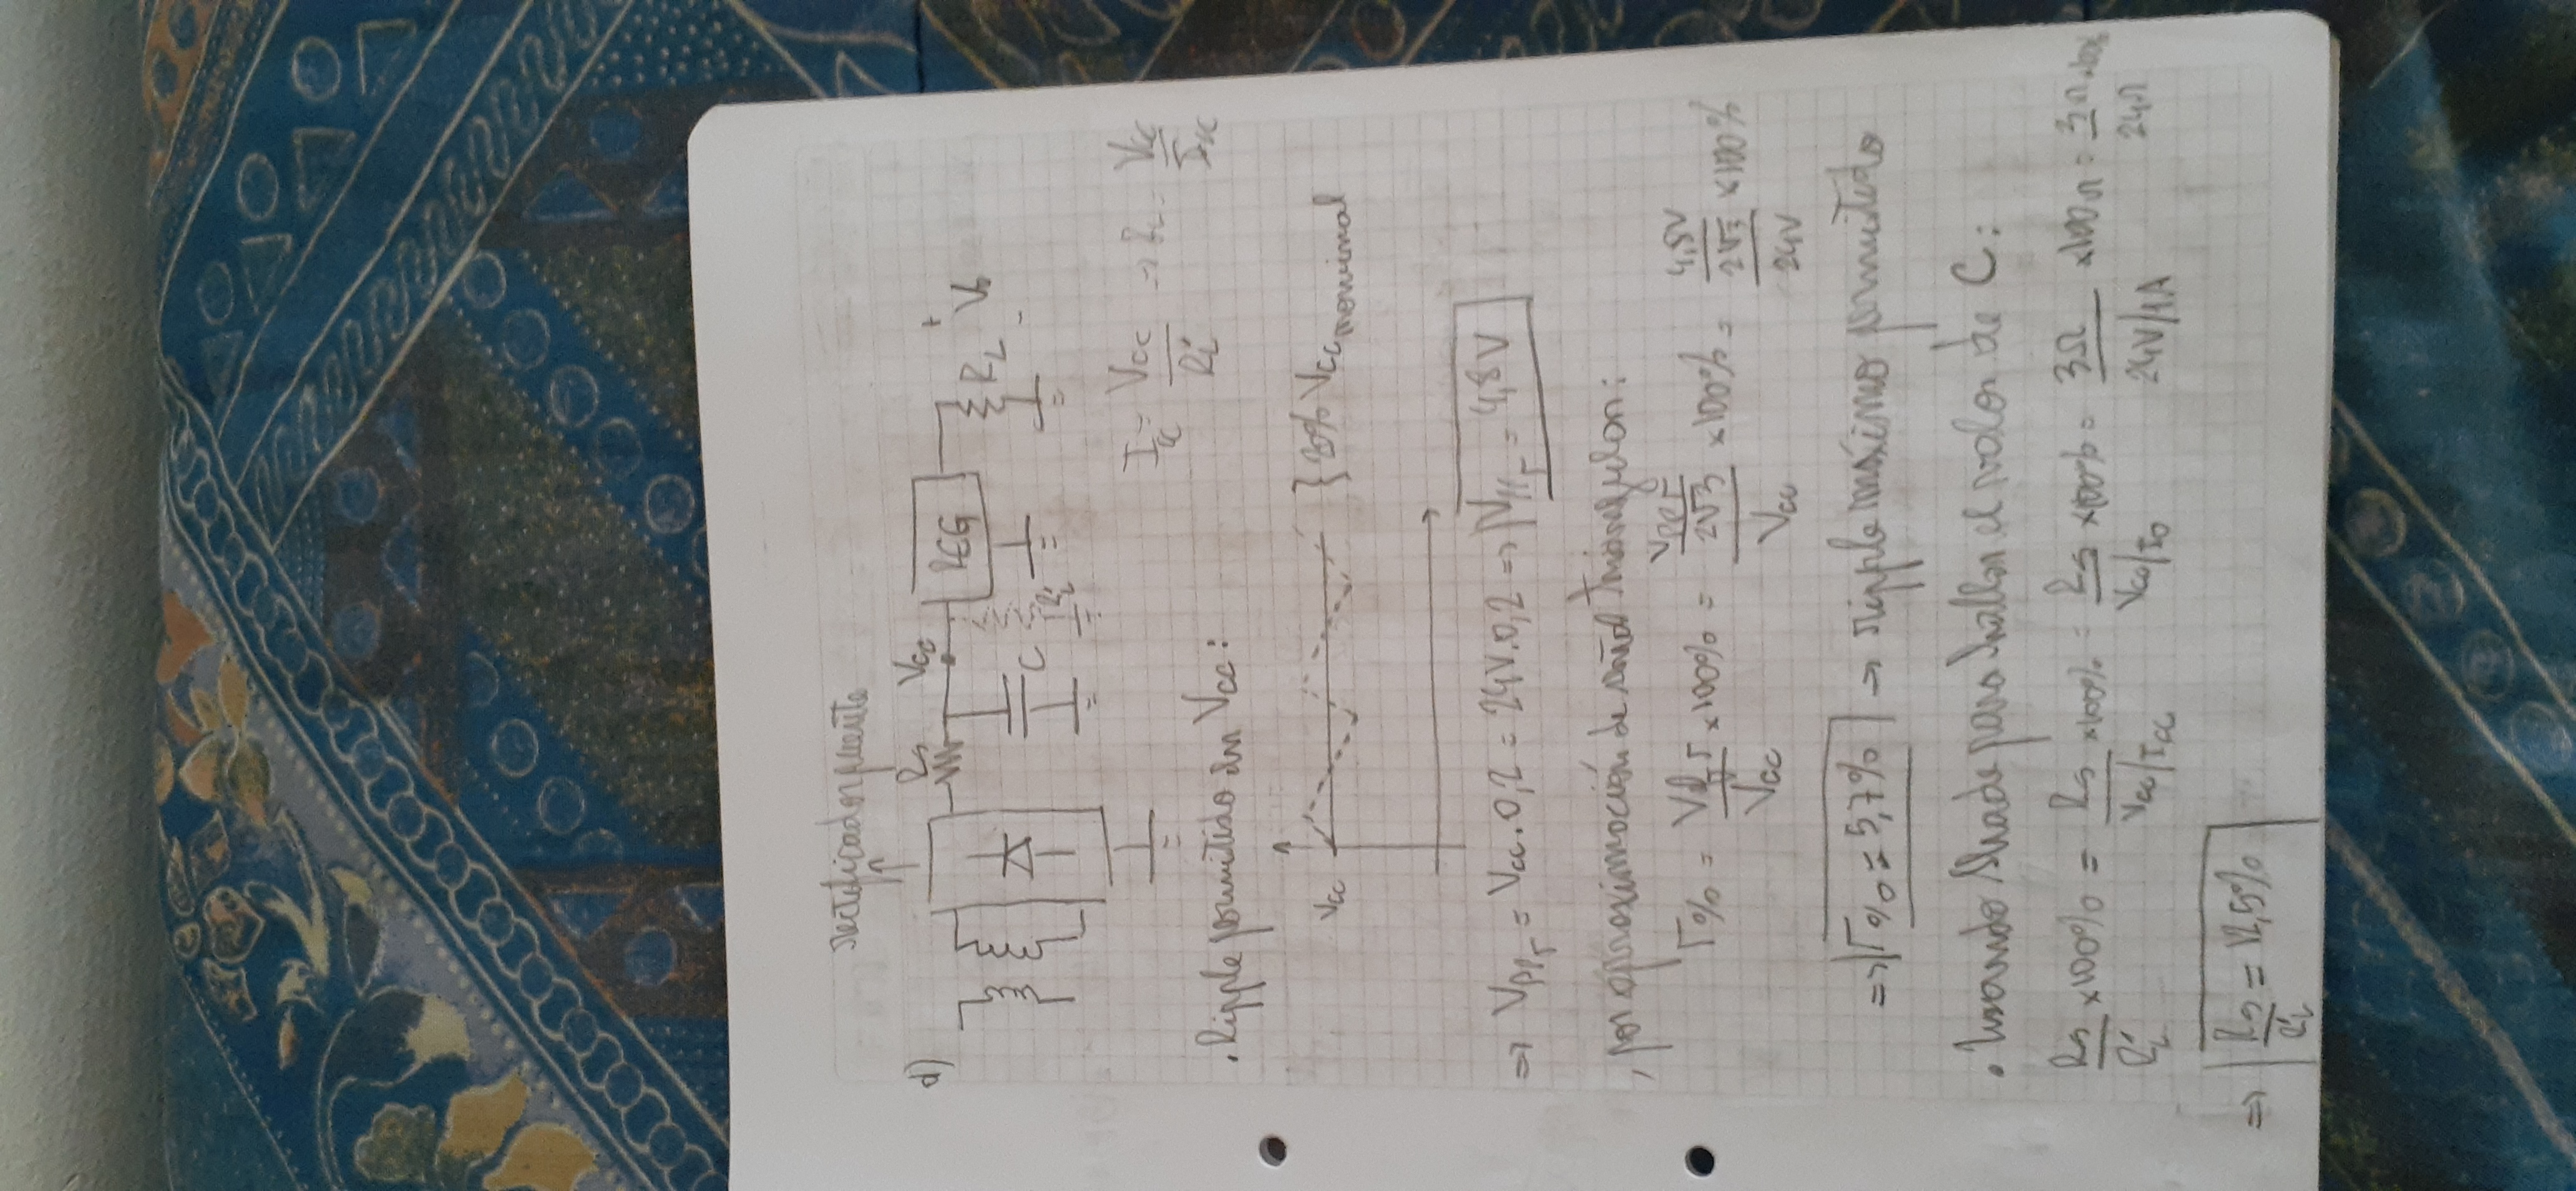 rectificador puente
d)
Rs
Vcc
REG
+
Vo
-
RL
C
RL'
Icc = Vcc / RL' => RL' = Vcc / Icc
. Ripple permitido en Vcc:
Vcc
} 20% Vcc nominal
=> VPPr = Vcc . 0,2 = 24V . 0,2 => VPPr = 4,8V
, por aproximación de señal triangular:
r% = Vefr / Vcc x100% = (VPPr / 2√3) / Vcc x100% = (4,8V / 2√3) / 24V x100%
=> r% = 5,7% => ripple máximo permitido
. Usando Shade para hallar el valor de C:
Rs / RL' x100% = Rs / (Vcc/Icc) x100% = Rs / (Vcc/Io) x100% = 3Ω / (24V/1A) x100% = 3Ω / 24Ω .100%
=> Rs / RL' = 12,5%